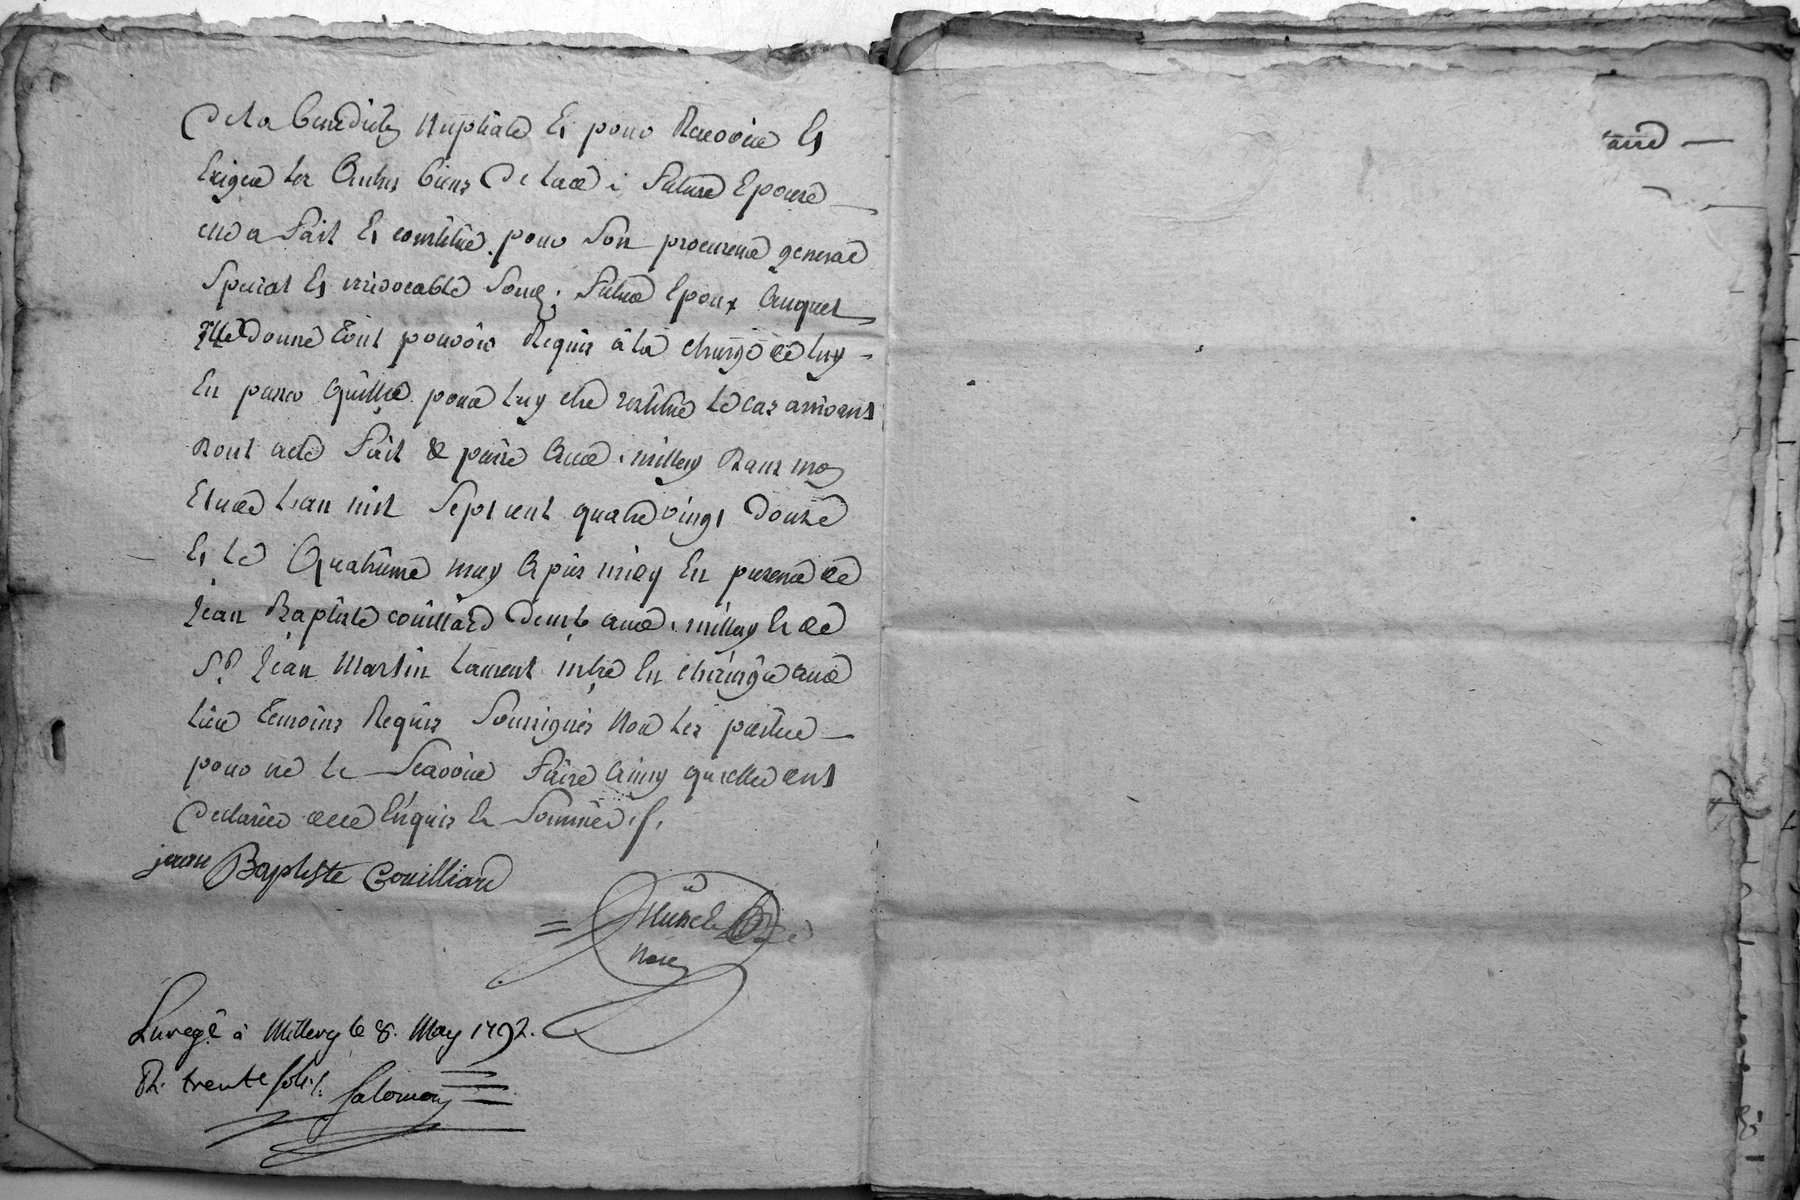 De la benedict Nuptiale Et pour Recevoir Et
Exiger les Autres biens De lad. future Epouse
elle a fait Et constitué pour Son procureur general
Special Et irrevocable Sond. futur Epoux Auquel
Elle donne tout pouvoir Requis à la charge de luy
En passer Quittce pour luy etre restitué le cas arrivant
Dont acte fait & passé Aud. millery Dans mon
Etude L'an mil Sept cent quatre vingt Douze
Et Le Quatrieme may Apres midy En presence de
Jean Baptiste couillard Demt aud. millery Et de
Sr. Jean Martin Laurent mtre En chirurgie aud.
lieu temoins Requis Soussignés Non les parties
pour ne le Scavoir faire Ainsy qu'elles ont
Declarées de ce Enquis Et Sommées
jean Baptiste Couilliard
Nore
Enregé à Millery le 8. May 1792.
R. trente sols
Salomon